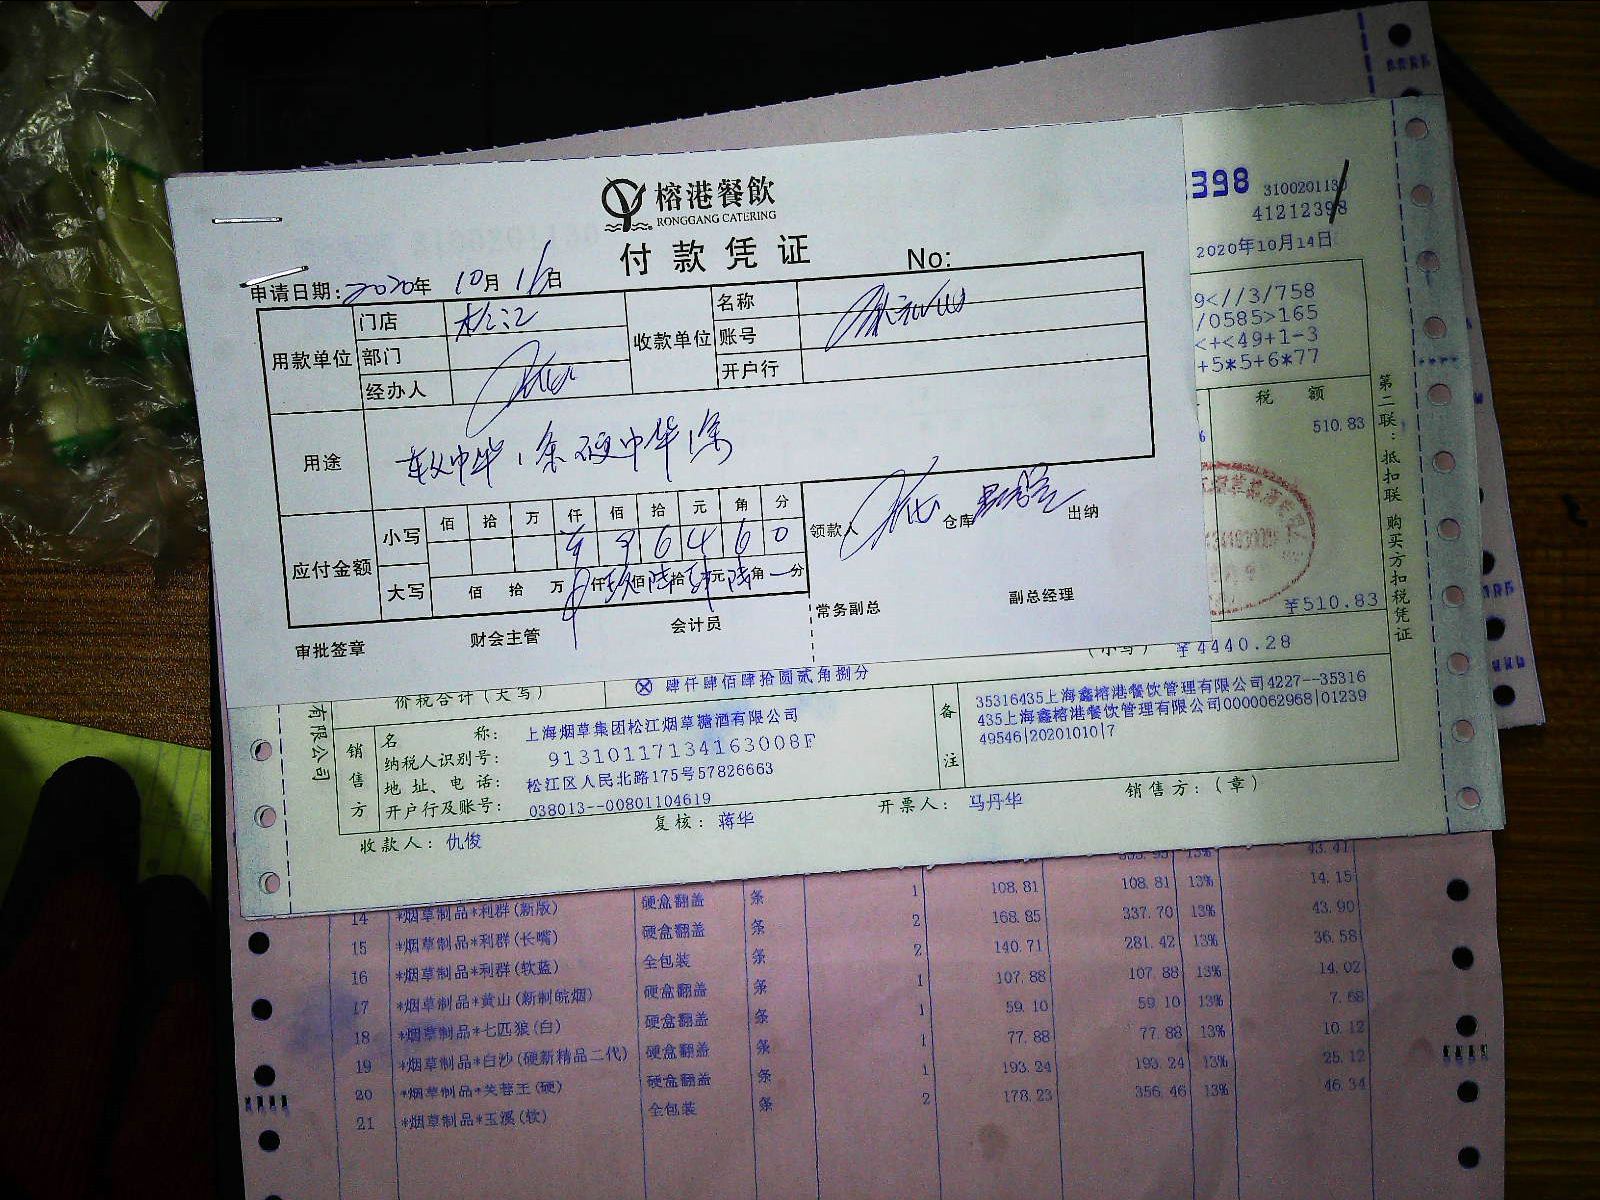 榕港餐飲
RONGGANG CATERING
付款凭证
No:
申请日期: 2020年 10月 16日
用款单位
门店
松江
部门
经办人
收款单位
名称
账号
开户行
用途
软中华1条 硬中华1条
应付金额
小写
佰 拾 万 仟 佰 拾 元 角 分
9 6 4 6 0
大写
佰 拾 万 仟 玖佰 陆拾 肆元 陆角 分
领款人
仓库
出纳
审批签章
财会主管
会计员
常务副总
副总经理
398
3100201130
41212398
2020年10月14日
9<//3/758
/0585>165
<+<49+1-3
+5*5+6*77
税 额
510.83
¥510.83
第二联:抵扣联 购买方扣税凭证
(小写) ¥4440.28
价税合计(大写)
肆仟肆佰肆拾圆贰角捌分
有限公司
销售方
名 称: 上海烟草集团松江烟草糖酒有限公司
纳税人识别号: 91310117134163008F
地址、电话: 松江区人民北路175号57826663
开户行及账号: 038013--00801104619
备注
35316435上海鑫榕港餐饮管理有限公司4227--35316
435上海鑫榕港餐饮管理有限公司0000062968|01239
49546|20201010|7
收款人: 仇俊
复核: 蒋华
开票人: 马丹华
销售方:(章)
13% 43.41
14 *烟草制品*利群(新版) 硬盒翻盖 条 1 108.81 108.81 13% 14.15
15 *烟草制品*利群(长嘴) 硬盒翻盖 条 2 168.85 337.70 13% 43.90
16 *烟草制品*利群(软蓝) 全包装 条 2 140.71 281.42 13% 36.58
17 *烟草制品*黄山(新制皖烟) 硬盒翻盖 条 1 107.88 107.88 13% 14.02
18 *烟草制品*七匹狼(白) 硬盒翻盖 条 1 59.10 59.10 13% 7.68
19 *烟草制品*白沙(硬新精品二代) 硬盒翻盖 条 1 77.88 77.88 13% 10.12
20 *烟草制品*芙蓉王(硬) 硬盒翻盖 条 1 193.24 193.24 13% 25.12
21 *烟草制品*玉溪(软) 全包装 条 2 178.23 356.46 13% 46.34